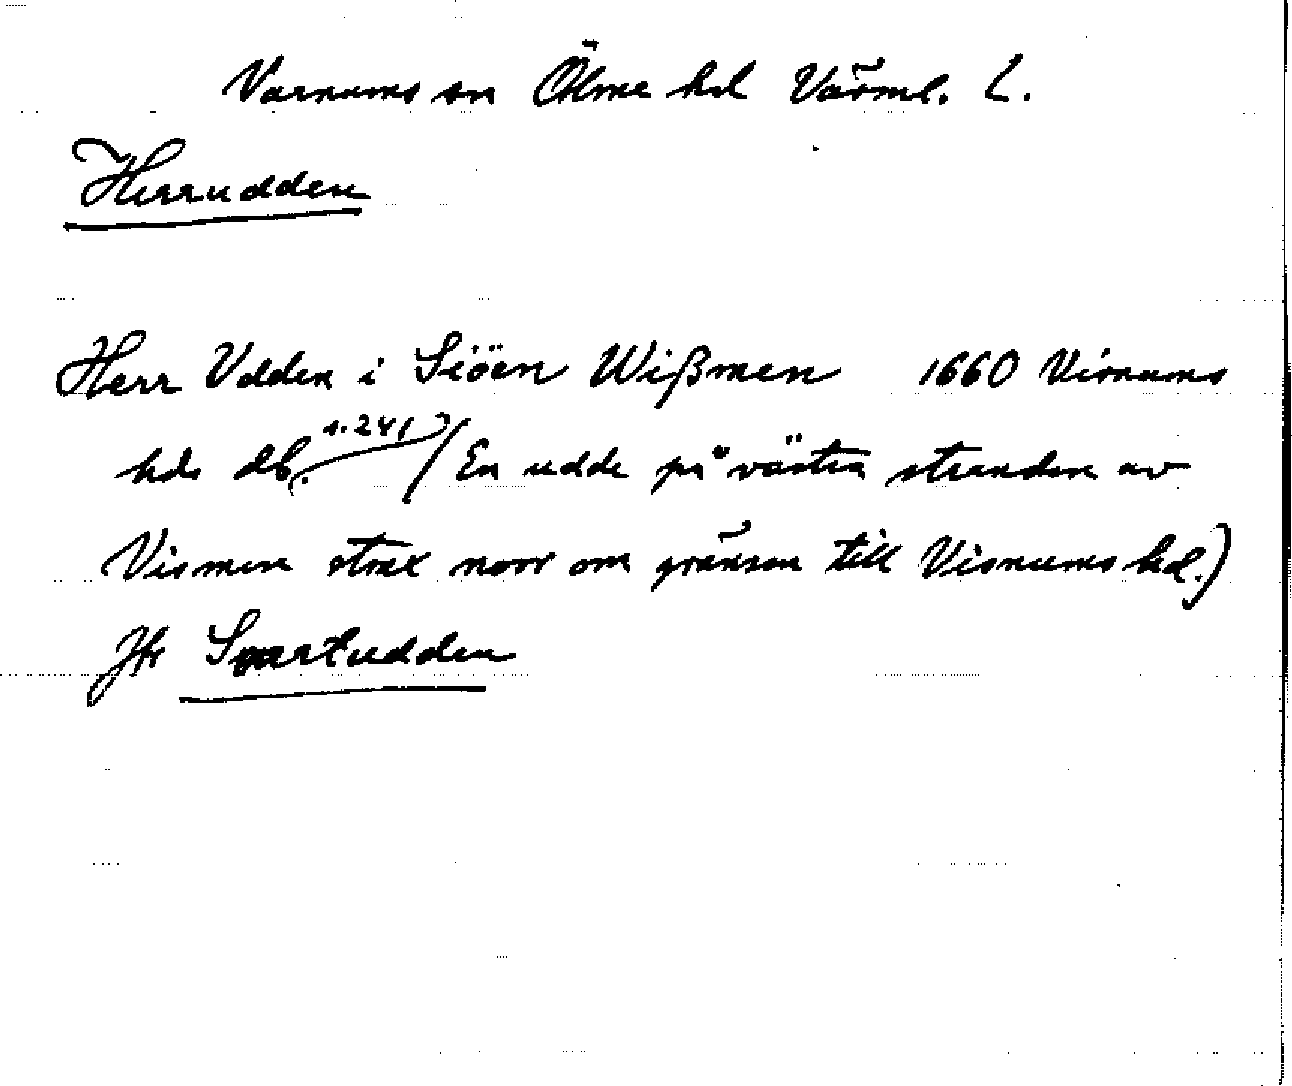 Varnums sn Ölme hd Värml. L.
Herrudden
Herr Udden i Siöen Wißmen 1660 Visnums
hds db. s. 241 (En udde på västra stranden av
Vismen strax norr om gränsen till Visnums hd.)
Jfr Svartudden